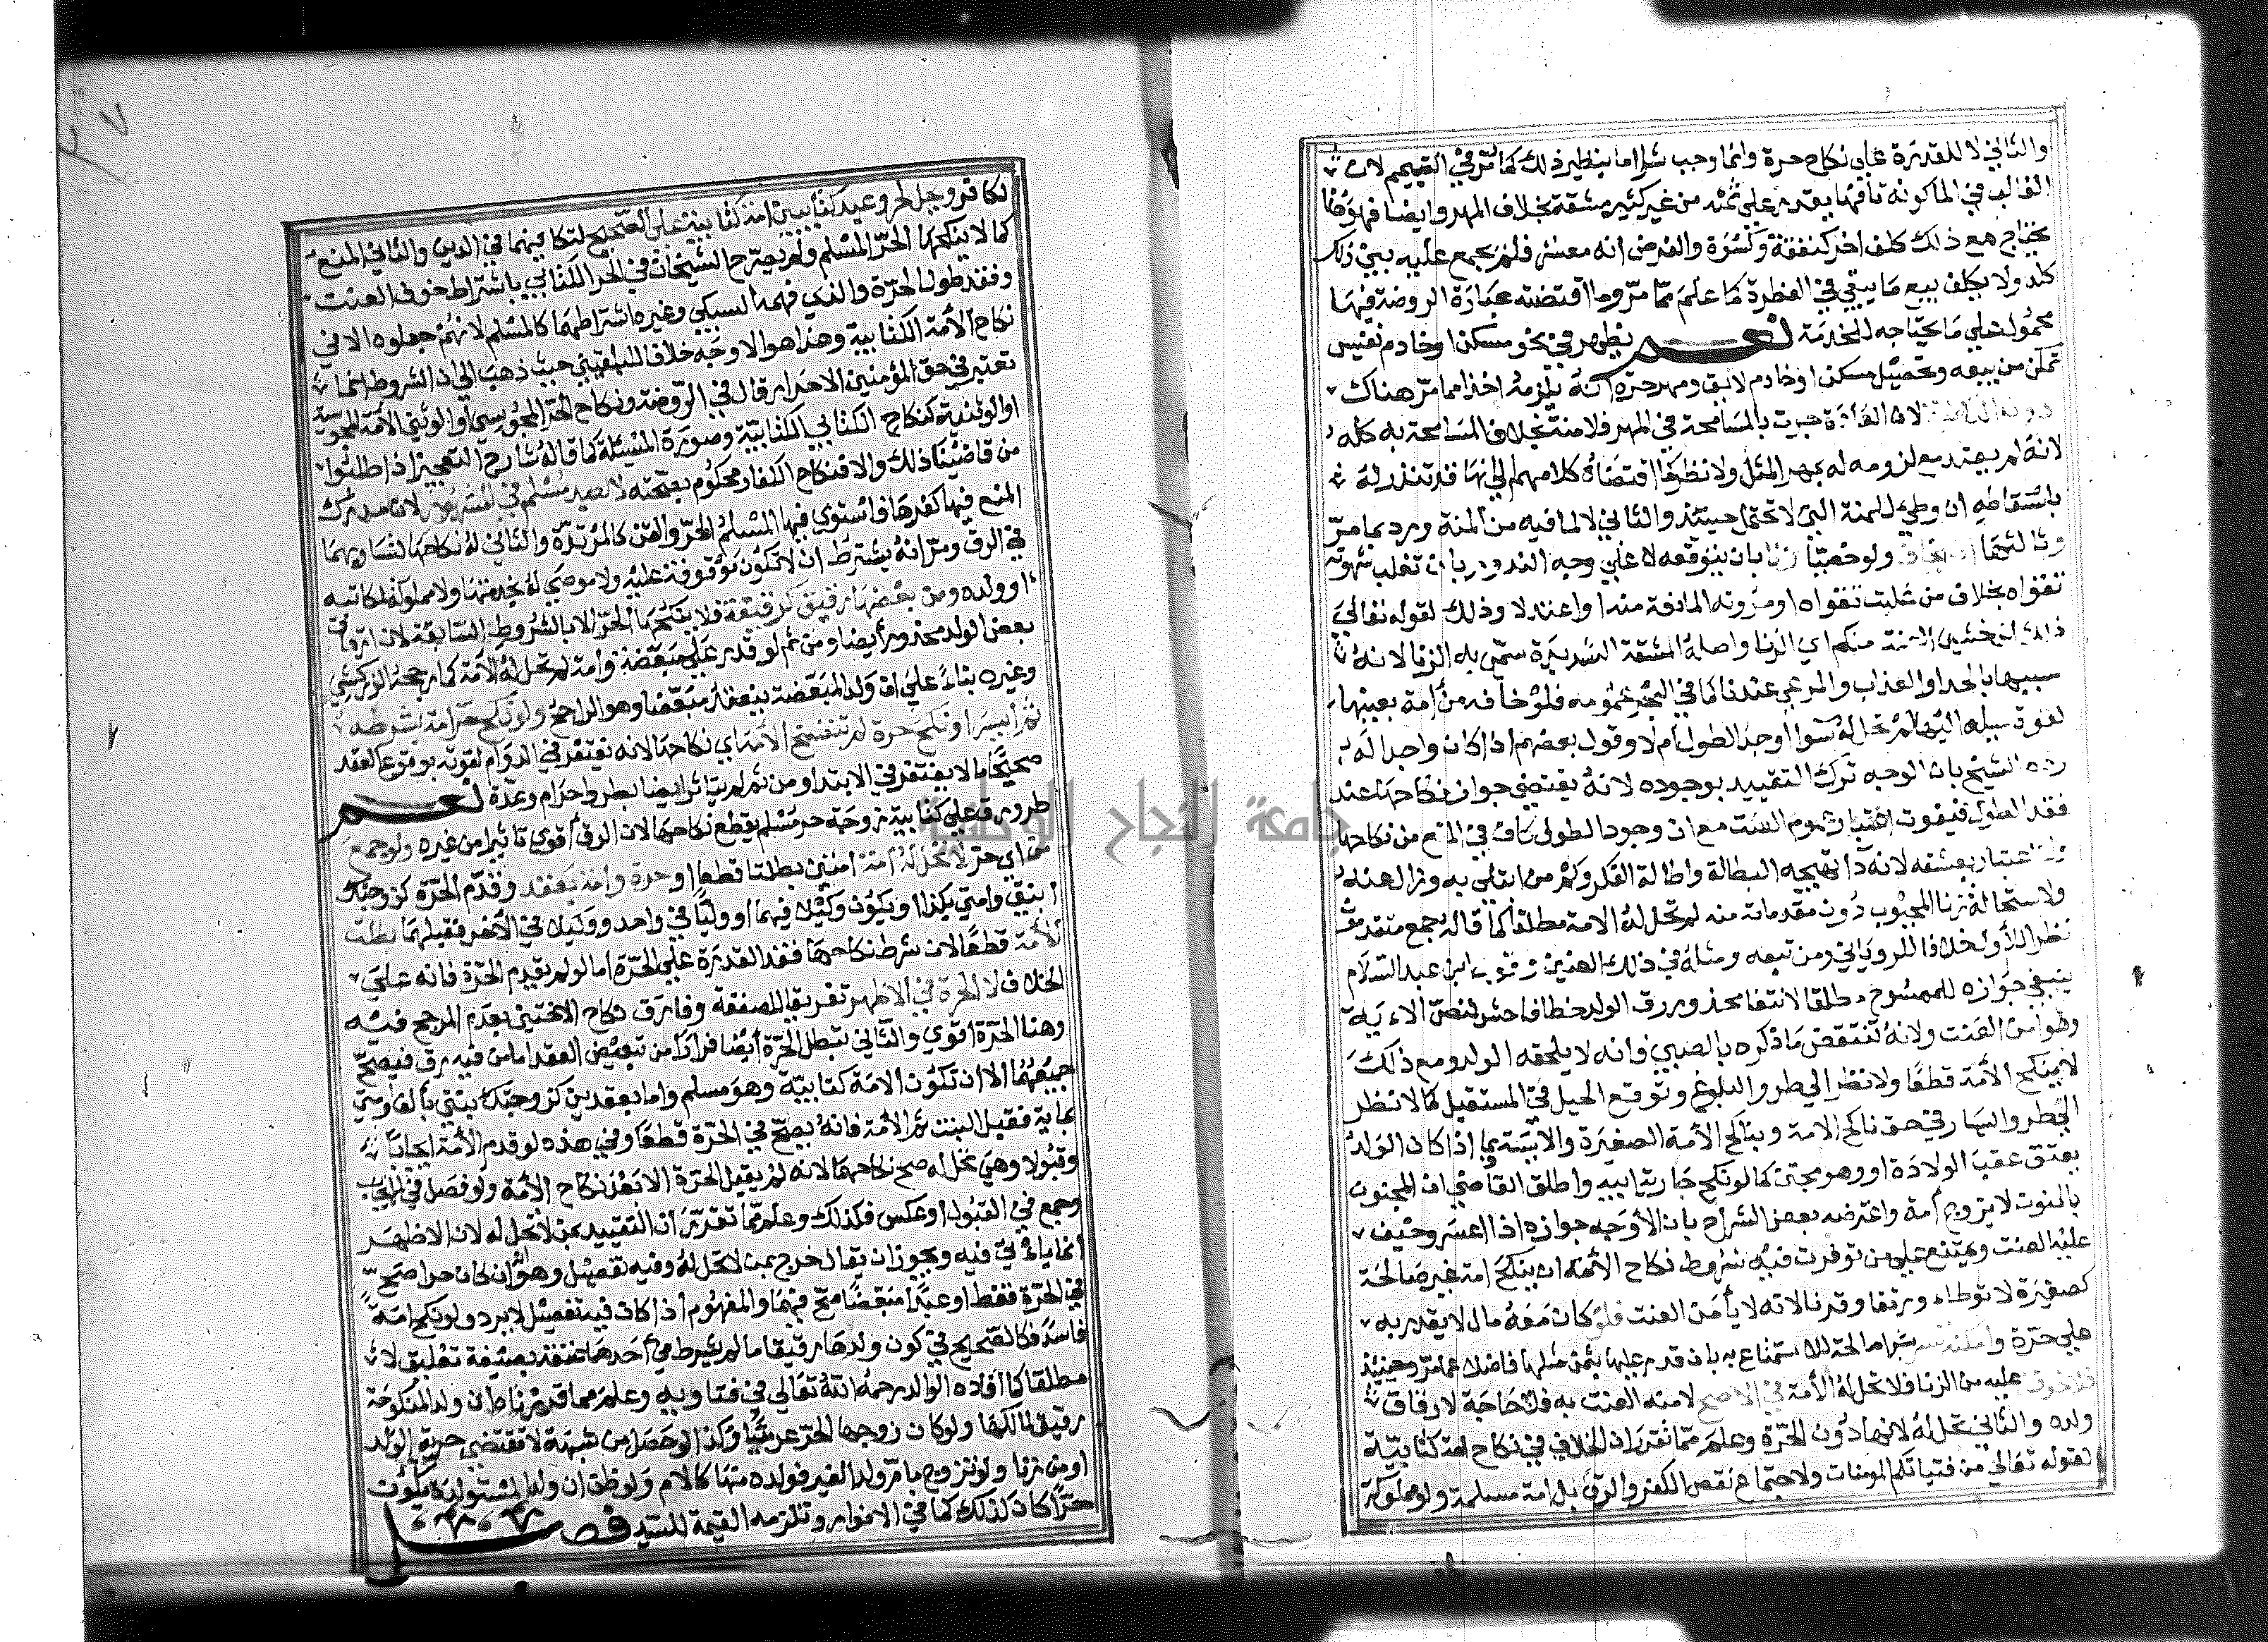 والثاني لا للقدرة على نكاح حرة وانما وجب شراءما بنظير ذلك كما مر في التيمم لان
الغالب في الماكونه تافها يقدر على ثمنه من غير كبير مشقة بخلاف المهر وايضا فهو هنا
يحتاج مع ذلك كلف اخر كنفقة وكسوة والفرض انه معسر فلم يجمع عليه بين ذلك
كله ولا يكلف بيع ما يبقي في الفطرة كما علم مما مر وما اقتضته عبارة الروضة فيها
محمول على ما يحتاجه للخدمة نعم يظهر في نحو مسكن او خادم نفيس
تمكن من بيعه وتحصيل مسكن او خادم لايق ومهر حرة انه يلزمه اخذا مما مر هناك
لان العادة جرت بالمسامحة في المهر فلا منة بخلاف المسامحة به كله
لانه لم يعتد مع لزومه له بمهر المثل ولا نظر اقتضاه كلامهم الي انها قد تنذر له
باسقاطه ان وطي للمنة التي لا تحتمل حينئذ والثاني لا لما فيه من المنة ورد بما مر
وثالثها ان يخاف ولو خصيا زنا بان يتوقعه لا على وجه الندور بان تغلب شهوته
تقواه بخلاف من غلبت تقواه او مروته المانعة منه او اعتدلا وذلك لقوله تعالى
ذلك لمن خشي العنت منكم اي الزنا واصله المشقة الشديدة سمي به الزنا لانه
سببها بالحد او العذاب والمرعي عندنا كما في البحر عمومه فلو خافه من امة بعينها
لقوة ميله اليها لم تحل له سوا اوجد الطول ام لا وقول بعضهم اذا كان واجدا له
رده الشيخ بان الوجه ترك التقييد بوجوده لانه يقتضي جواز نكاحها عند
فقد الطول فيفوت اعتبار عموم العنت مع ان وجود الطول كاف في المنع من نكاحها
ولا اعتبار بعشقه لانه دا تهيجه البطالة واطالة الفكر وكم من ابتلي به وزال عنه
ولاستحالة زنا المجبوب دون مقدماته منه لم تحل له الامة مطلقا كما قاله جمع متقدمون
نظرا للاول خلافا للروياني ومن تبعه ومثله في ذلك العنين وقول ابن عبد السلام
ينبغي جوازه للممسوح مطلقا لانتفا محذور رق الولد خطا فاحش لنص الاية
وهو امن العنت ولانه تنتقض ما ذكره بالصبي فانه لا يلحقه الولد ومع ذلك
لا ينكح الأمة قطعا ولا نظر الى طرو البلوغ وتوقع الحبل في المستقبل كما لا نظر
الى طرو اليسار في حق ناكح الامة وبناكح الأمة الصغيرة والآيسة بما اذا كان الولد
يعتق عقب الولادة او وهو مجتن كما لو نكح جارية ابيه واطلق القاضي ان المجنون
بالنون لا يزوج امة واعترضه بعض الشراح بان الأوجه جوازه اذا اعسر وخيف
عليه العنت ويمتنع على من توفرت فيه شروط نكاح الأمة ان ينكح امة غير صالحة
كصغيرة لا توطاء ورتقا وقرنا لانه لا يأمن العنت فلو كان معه مال لا يقدر به
على حرة وامكنه شراء صالحة للاستمتاع به بان قدر عليها بثمن مثلها فاضلا عما مر وحينئذ
فلا خوف عليه من الزنا فلا تحل له الأمة في الاصح لامنه العنت به فلا حاجة لارقاق
ولده والثاني تحل له لانها دون الحرة وعلم مما تقرر ان الخلاف في نكاح امة كتابية
لقوله تعالى من فتياتكم المومنات ولاجتماع نقص الكفر والرق بل امة مسلمة ولو مملوكة
لكافر وحل لحر وعبد كتابيين امة كتابية على الصحيح لتكافيهما في الدين والثاني المنع
كما لا ينكحها الحر المسلم ولم يصرح الشيخان في الحر الكتابي باشتراط خوف العنت
وفقد طول الحرة والذي فهمه السبكي وغيره اشتراطهما كالمسلم لانهم جعلوه الا في
نكاح الأمة الكتابية وهذا هو الاوجه خلافا للبلقيني حيث ذهب الى ان الشروط انما
تعتبر في حق المؤمنين الاحرار قال في الروضة ونكاح الحر المجوسي او الوثني الأمة المجوسية
او الوثنية كنكاح الكتابي الكتابية وصورة المسئلة كما قاله شارح التعجيز اذا طلبوا
من قاضينا ذلك والا فنكاح الكفار محكوم بصحته لا لعبد مسلم في المشهور لان مدرك
المنع فيها كفرها فاستوى فيها المسلم الحر والقن كالمرتدة والثاني له نكاحها لتساويهما
في الرق ومر انه يشترط ان لا تكون موقوفة عليه ولا موصى له بخدمتها ولا مملوكة لمكاتبه
او ولده ومن بعضها رقيق كرقيقة فلا ينكحها الحر الا بالشروط السابقة لان ارقاق
بعض الولد محذور أيضا ومن ثم لو قدر على مبعضة وامة لم تحل له الأمة كما رجحه الزركشي
وغيره بناء على ان ولد المبعضة ينعقد مبعضا وهو الراجح ولو نكح حر امة بشرطه
ثم ايسر او نكح حرة لم تنفسخ الأمة اي نكاحها لانه يغتفر في الدوام لقوته بوقوع العقد
صحيحا ما لا يغتفر في الابتدا ومن ثم لم يتاثر ايضا بطرو احرام وعدة نعم
طرو رق على كتابية زوجة حر مسلم يقطع نكاحها لان الرق أقوى تاثيرا من غيره ولو جمع
من اي حر لا تحل له امة امتين بطلتا قطعا او حرة وامة بعقد وقدم الحرة كزوجتك
ابنتي وامتي بكذا او يكون وكيلا فيهما أو وليا في واحد ووكيلا في الأخر فقبلهما بطلت
الأمة قطعا لان شرط نكاحها فقد القدرة على الحرة اما لو لم يقدم الحرة فانه على
الخلاف لا الحرة في الاظهر تفريقا للصفقة وفارق نكاح الاختين بعدم المرجح فيه
وهنا الحرة أقوي والثاني تبطل الحرة أيضا فرارا من تبعيض العقد اما من فيه رق فيصح
جميعهما الا ان تكون الامة كتابية وهو مسلم واما بعقدين كزوجتك بنتي بألف وامتي
بماية فقبل البنت ثم الأمة فانه يصح في الحرة قطعا وفي هذه لو قدم الأمة ايجابا
وقبولا وهي تحل له صح نكاحهما لانه لم يقبل الحرة الا بعد نكاح الأمة ولو فصل في الايجاب
وجمع في القبول او عكس فكذلك وعلم مما تقرر ان التقييد بمن لا تحل له لان الاظهر
انما ياتي فيه ويجوز ان يقال خرج بمن لا تحل له وفيه تفصيل وهو أن كان حرا صح
في الحرة فقط او عبدا مبعضا صح فيهما والمفهوم اذا كان فيه تفصيل لا يرد ولو نكح امة
فاسدا فكالصحيح في كون ولدها رقيقا ما لم يشرط في أحدهما عتقه بصيغة تعليق لا
مطلقا كما أفاده الوالد رحمه الله تعالى في فتاويه وعلم مما قررناه ان ولد المنكوحة
رقيق لمالكها ولو كان زوجها الحر عربيا وكذا لو حصل من شبهة لا تقتضي حرية الولد
او من زنا ولو تزوج بام ولد الغير فولده منها كالام ولو ظن ان ولد المستولدة يكون
حرا كان كذلك كما في الانوار وتلزمه القيمة للسيد فصل
جامعة النجاح الوطنية